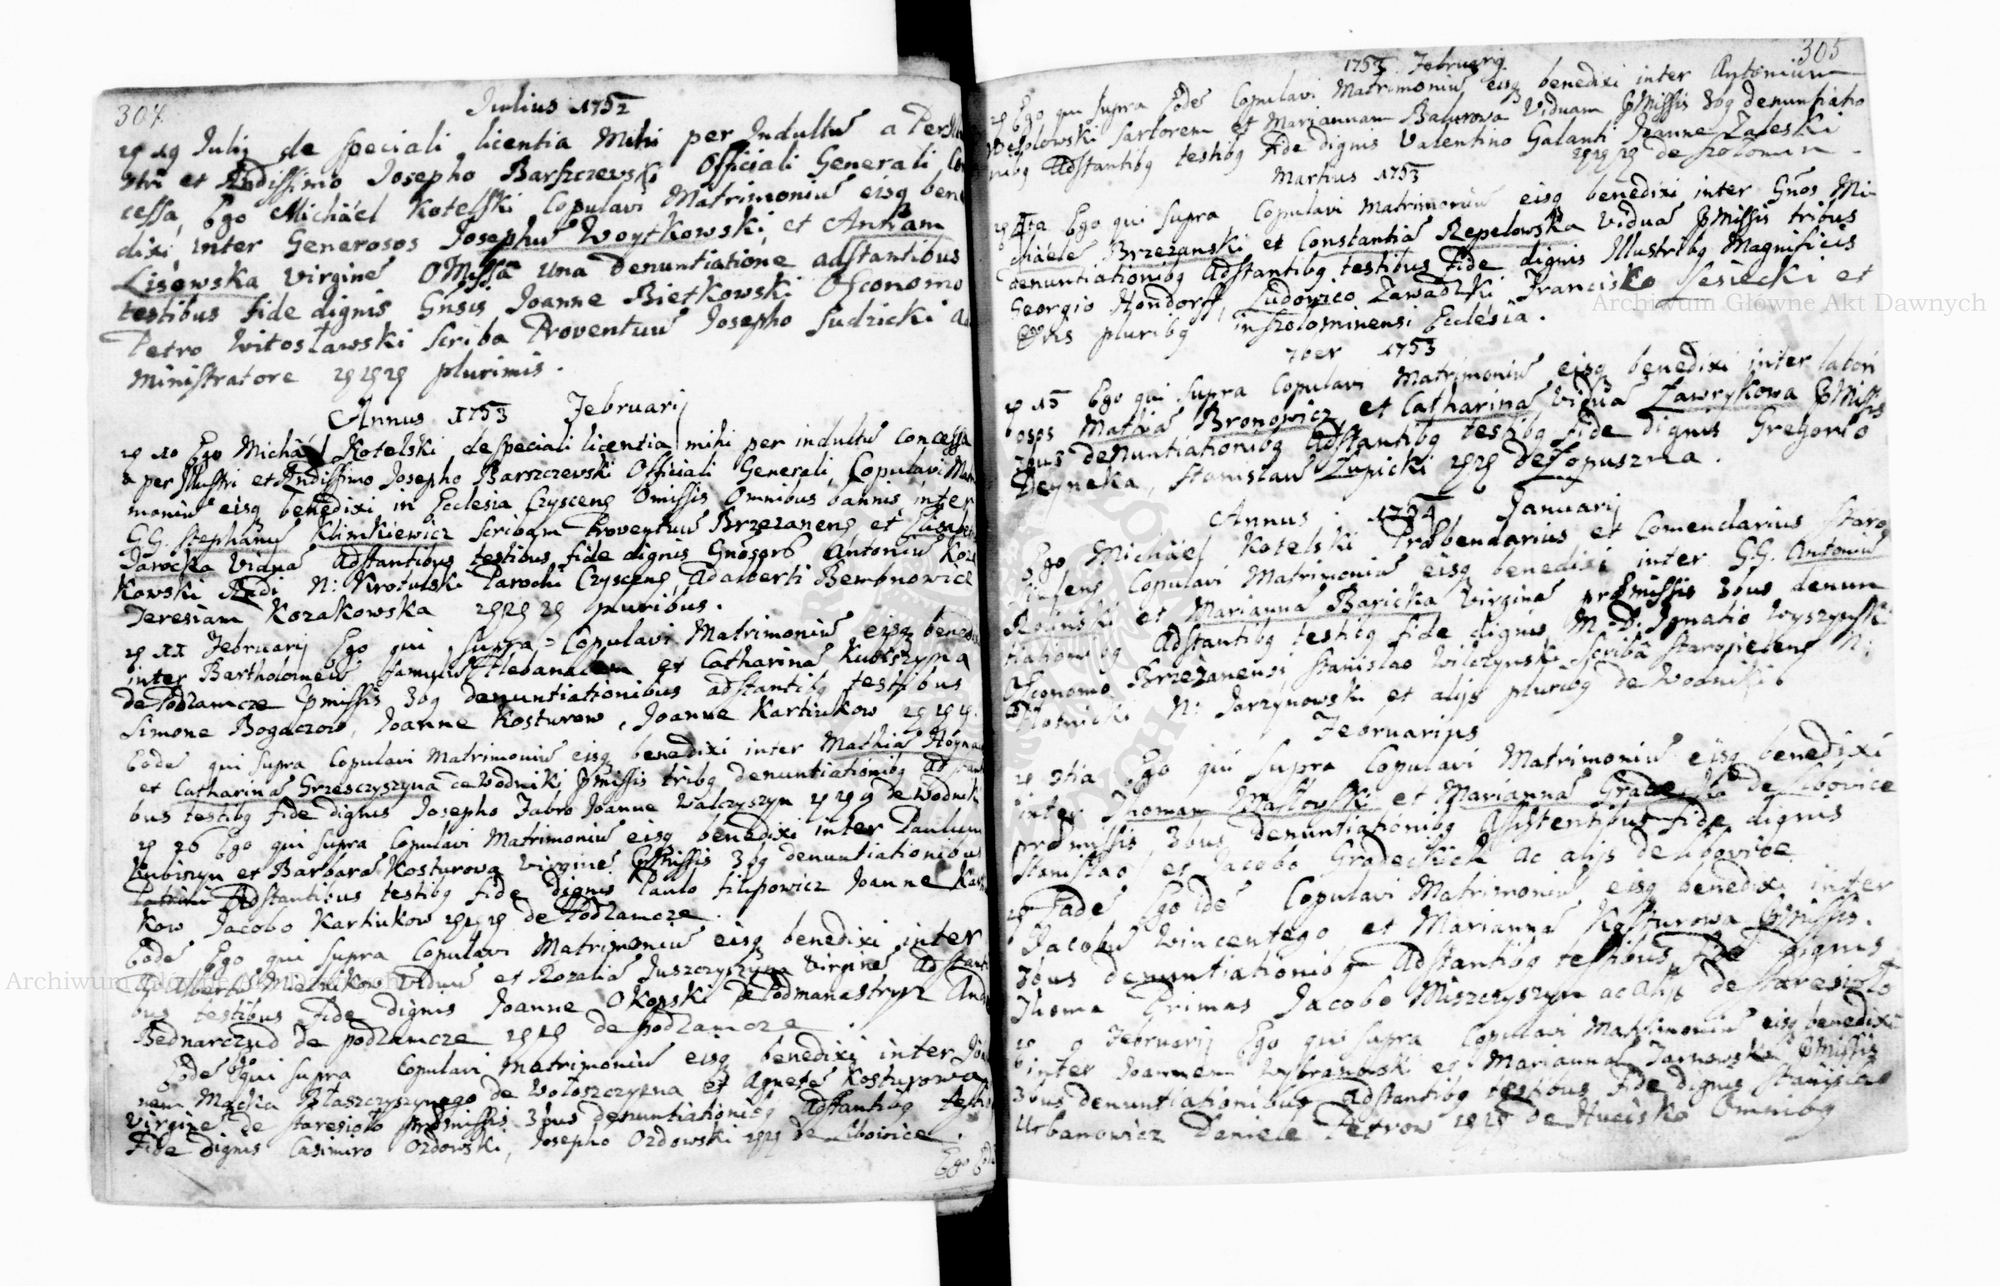 304
Julius 1752
29 19 Julij de speciali licentia Mihi per Indultu a Per
stri et Rndissimo Josepho Barszczewski Officiali Generali
cessa, Ego Michäel Kotelski Copulavi Matrimoniu eisq bene
dixi, inter Generosos Josephu Woytkowski, et Annam
Lisewska Virgine OMissa Una Denuntiatione adstantibus
testibus fide dignis Gnsis Joanne Bietkowski Oeconomo
Petro Witosławski Scriba Proventuu Josepho Sudzicki Ad
ministratore 292929 plurimis.
Annus 1753 Februarij
29 10 Ego Michäel Kotelski de speciali licentia mihi per indultu concessa
a per Illustri et Rndissimo Josepho Barszczewski Officiali Generali, Copulavi Matri
moniu eisq benedixi in Ecclesia Czysceng Omissis Omnibus bannis inter
G.G. Stephanu Klimkiewicz Scribam Proventuu Brzezaneng et
Jarocka Vidua Adstantibus testibus fide dignis Gnosorb Antoniu Koza
kowski Rndi N: Krotulski Parochi Czysceng Adalberti Bembnowicz
Teresiam Kozakowska 2929 29 pluribus.
29 XX Februarij Ego qui Supra Copulavi Matrimoniu eisq bene
inter Bartholomeu famulu Plebanalem et Catharina Kubiszyna
de Podzamcze pmissis 3bq denuntiationibus adstantibq testibus
Simone Bogaczow, Joanne Kosturow, Joanne Kartiukow 29 29 29.
Eode qui Supra Copulavi Matrimoniu eisq benedixi inter Mathia
et Catharina Grzesczyszyna de Wodniki pmissis tribq denuntiationibq adstanti
bus testibq fide dignis Josepho Fabro Joanne Walczyszyn 29 29 29 de Wodniki
29 26 Ego qui Supra Copulavi Matrimoniu eisq benedixi inter Paulum
Kubiszyn et Barbara Kosturowa Virgine pmissis 3bq denuntiationibus
Adstantibus testibq fide dignis Paulo filipowicz Joanne
kow Jacobo Kartiukow 292929 de Podzamcze.
Eode Ego qui Supra Copulavi Matrimoniu eisq benedixi inter
Albertu Mielnikow Viduu et Rozalia Juszczyszyna Virgine Adstanti
bus testibus fide dignis Joanne Okonski de Podmanastyrz
Bednarczud de podzamcze 2929 de podzamcze.
Eode Ego qui Supra Copulavi Matrimoniu eisq benedixi inter
nem Machia Błaszczyszynego de Wołoszczyzna et Agnete Kosturowa
Virgine de staresioło pmissis 3bus denuntiationibq Adstantibq testibq
fide dignis Casimiro Ozdowski, Josepho Ozdowski 2929 de Libowice.
Ego
305
1753 Februarij
29 Ego qui Supra Eode Copulavi Matrimoniu eisq benedixi inter Antonium
Wesolowski Sartorem et Mariannam Balurowa Viduam pmissis 3bq denuntiatio
nibq Adstantibq testibq fide dignis Valentino Galanti Joanne Zaleski
292929 de szołomin.
Martius 1753
29 Ego qui Supra Copulavi Matrimoniu eisq benedixi inter Gnos Mi
chäele Brzezanski et Constantia Repelowska Vidua pmissis tribus
denuntiationibq Adstantibq testibus fide dignis Illustribq Magnificis
Georgio Hondorff, Ludovico Zawadzki Francisko Sesiecki et
pluribq in szolominensi Ecclesia.
7ber 1753
29 15 Ego qui Supra Copulavi Matrimoniu eisq benedixi inter labori
osos Mathia Bronowicz et Catharina Vidua Zawrykowa pmissis
3bus denuntiationibq Adstantibq testibq fide dignis Gregorio
Deyneka, Stanislaw Zupicki 2929 de Łopuszna.
Annus 1754 Januarij
Ego Michäel Kotelski Præbendarius et Comendarius Staro
sielens Copulavi Matrimoniu eisq benedixi inter G.G. Antoniu
Rolinski et Marianna Baricka Virgina præmissis 3bus denun
tiationibq Adstantibq testibq fide dignis, M. D. Ignatio Wyszynski
Oeconomo Brzezanensi Stanislao Wilczynski Scriba Starosielens N:
Płotnicki N: Jarzynowski et alijs pluribq de Wodniki
Februarius
29 3tia Ego qui Supra Copulavi Matrimoniu eisq benedixi
inter Thomam Masłowski et Marianna Gradecka de Libovice
præmissis 3bus denuntiationibq Assistentibus fide dignis
Stanislao et Jacobo Gradeckich ac alijs de Libovice.
29 Eade Ego ide Copulavi Matrimoniu eisq benedixi inter
Jacobu Wincentego et Marianna Kosturowa pmissis.
3bus denuntiationibq Adstantibq testibus fide dignis
Thoma Grimas Jacobo Miszczyszyn ac alijs de Staresioło
29 9 Februarij Ego qui supra Copulavi Matrimoniu eisq benedixi
inter Joannem Wybranowski et Marianna Jarnowska pmissis
3bus denuntiationibus Adstantibq testibus fide dignis Stanislao
Urbanowicz Daniele Petrow 2929 de Hucisko Omnibq
Archiwum Główne Akt Dawnych
Archiwum Główne Akt Dawnych